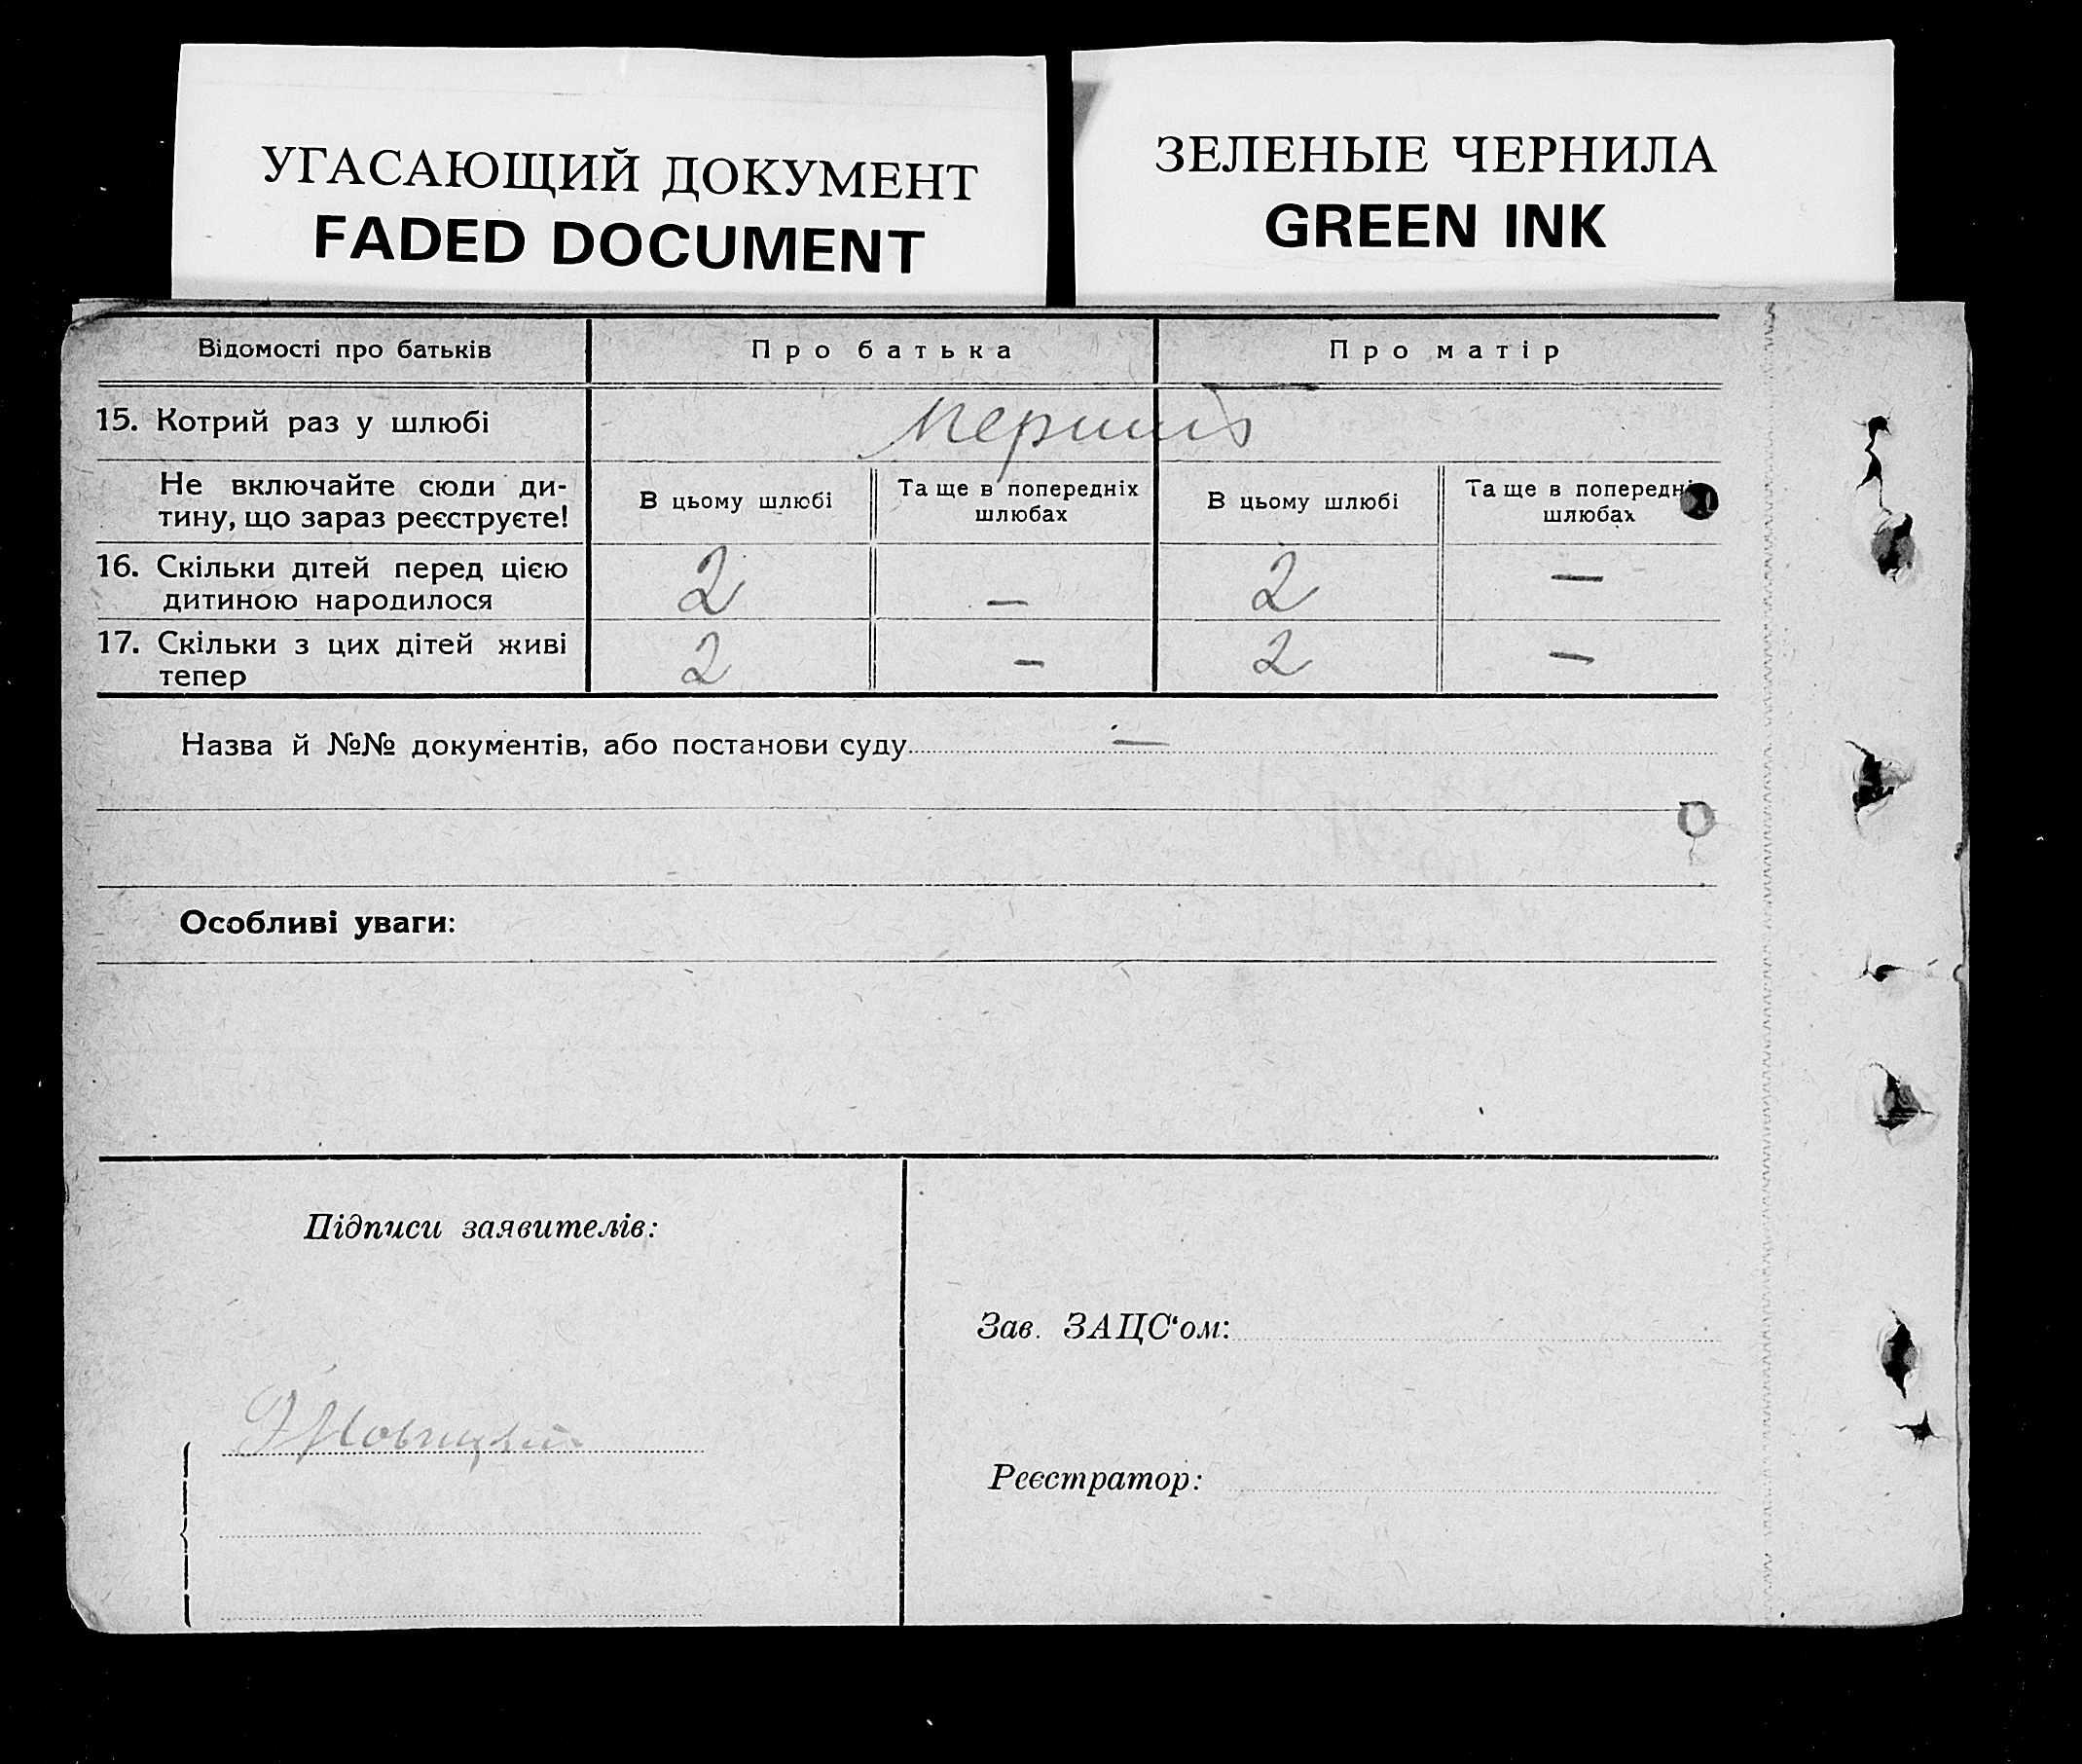 УГАСАЮЩИЙ ДОКУМЕНТ
FADED DOCUMENT
ЗЕЛЕНЫЕ ЧЕРНИЛА
GREEN INK
Відомості про батьків Про батька Про матір
15. Котрий раз у шлюбі
Не включайте сюди ди-
тину, що зараз реєструєте!
В цьому шлюбі
Та ще в попередніх
шлюбах
В цьому шлюбі
Та ще в попередні
шлюбах
16. Скільки дітей перед цією
дитиною народилося
2 — 2 —
17. Скільки з цих дітей живі
тепер
2 — 2 —
Назва й №№ документів, або постанови суду —
Особливі уваги:
Підписи заявителів:
Зав. ЗАЦС‘ом:
Реєстратор: